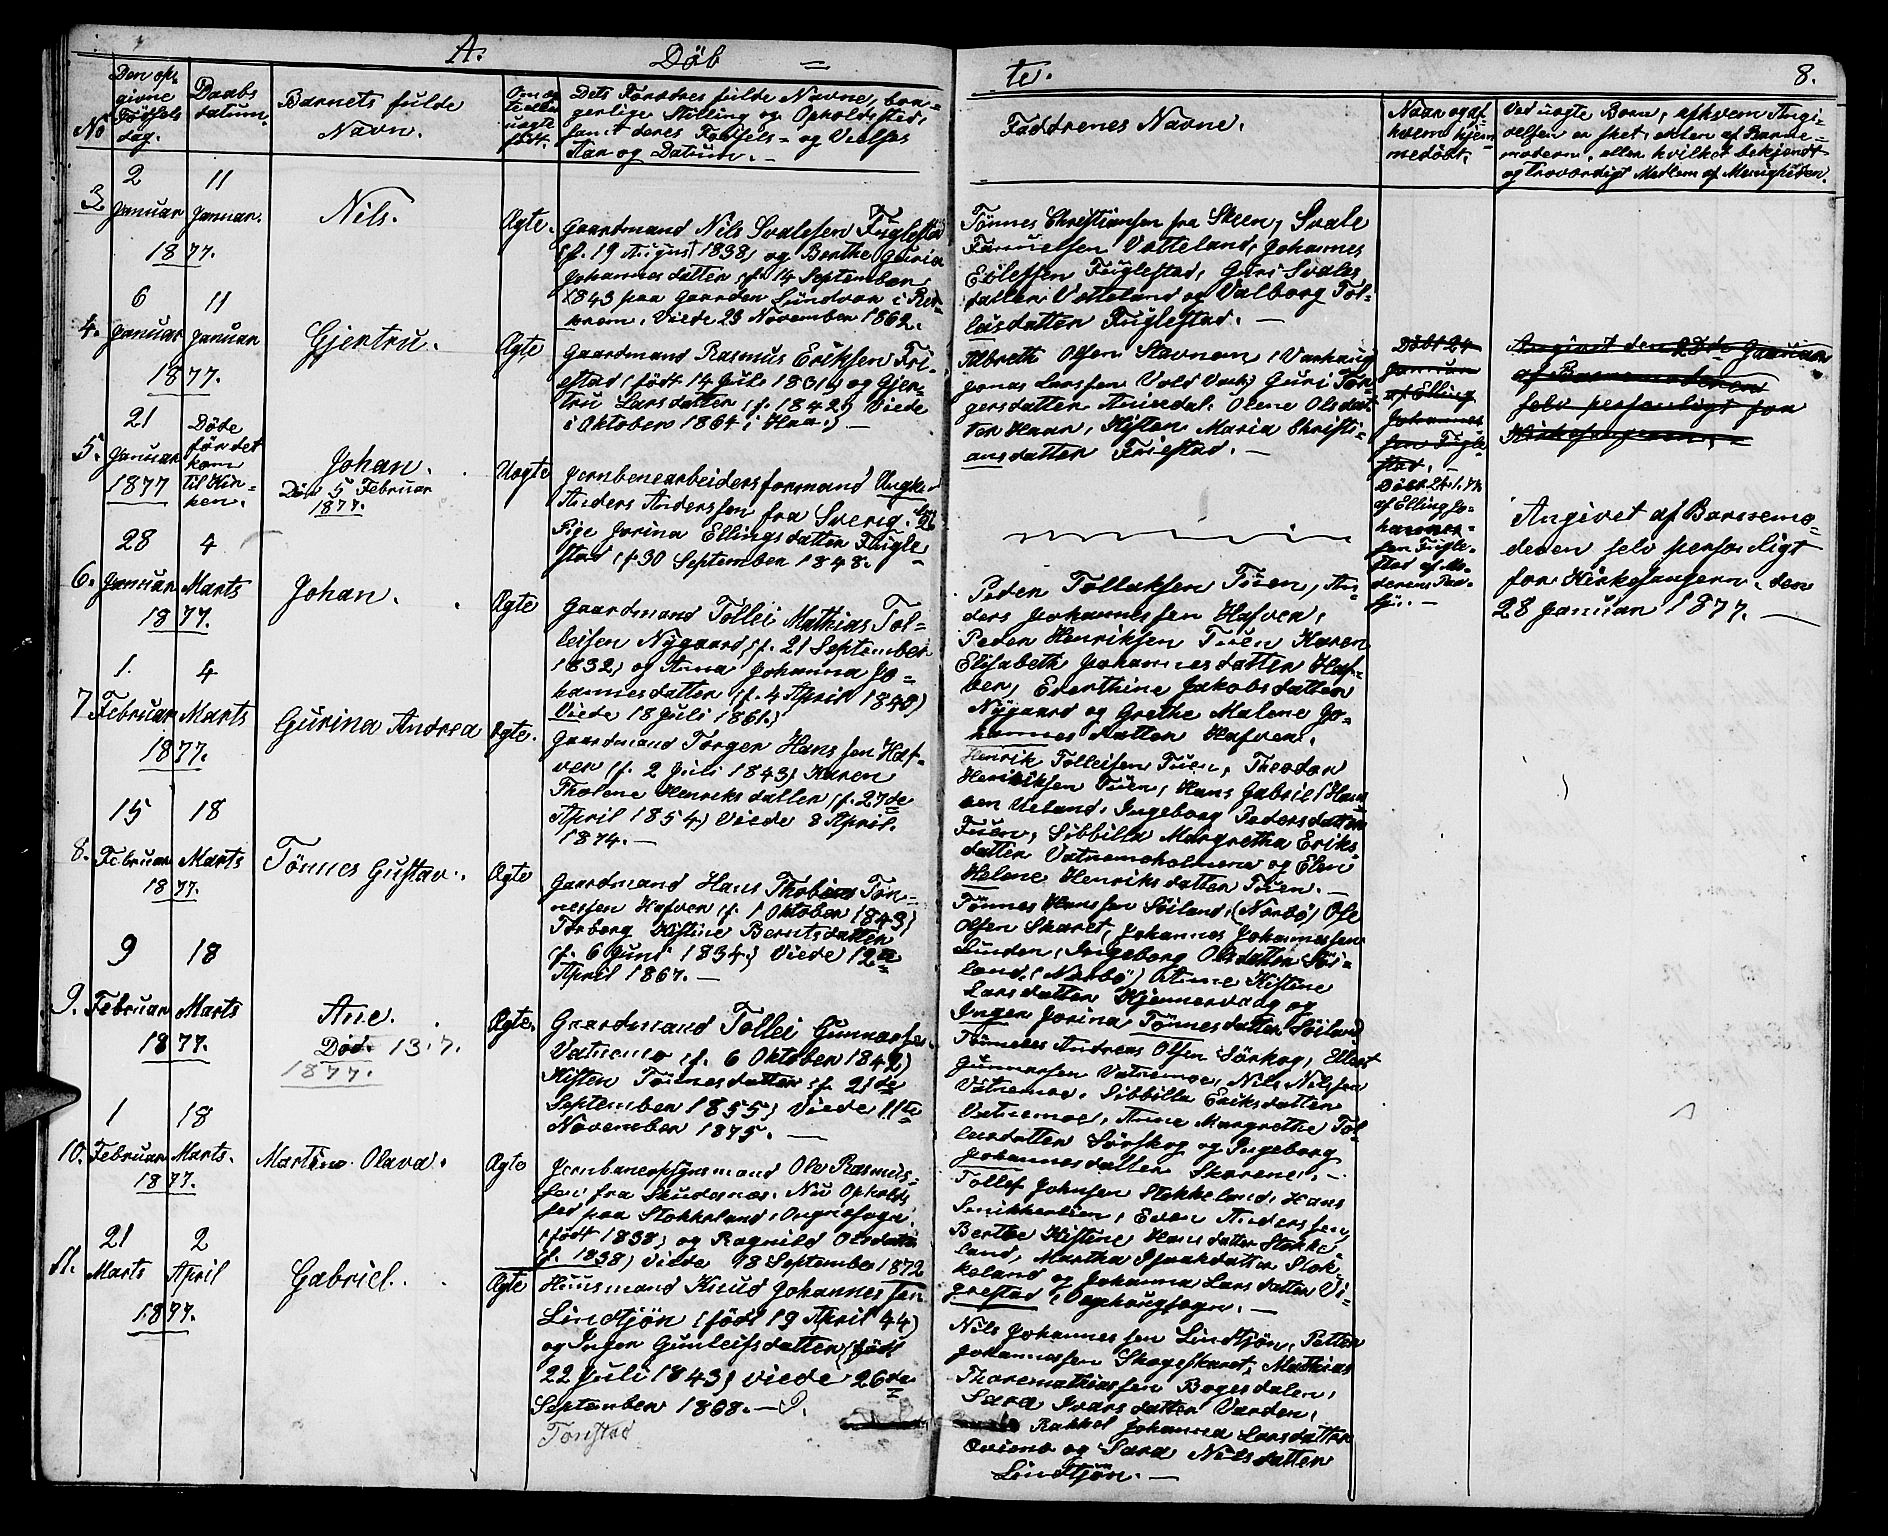 A. Döb = te. 8.
No
Den op=
givne
Fødsels
dag.
Daabs
datum.
Barnets fulde
Navn.
Om æg
te eller
uægte
født.
Dets Forældres fulde Navne, bor=
gerlige Stilling og Opholdsted,
samt deres Fødsels= og Vielses
Aar og Datum. —
Faddrenes Navne.
Navn og af
hvem hjem
medöbt.
Ved uægte Born, af hvem Angi=
velsen er sket, enten af Barne=
moderen, eller hvilket bekjendt
og troværdigt Medlem af Menigheden.
3.
2
Januar
1877.
11
Januar.
Nils.
Ægte.
Gaardmand Nils Svalesen Fuglestad
(f. 19 August 1838) og Berthe Guria
Johannesdatter (f. 14 September
1843 paa Gaarden Lindvar i
Viede 23 November 1862.
Tønnes Christiansen fra Skeen, Svale
Vatteland, Johannes
Fuglestad, Guri Svales
datter Vatteland og Valborg Tol=
leisdatter Fuglestad. —
4.
6
Januar
1877.
11
Januar
Gjertru.
Ægte
Gaardmand Rasmus Eriksen Fri=
estad (födt 14 Juli 1831) og Gjer=
tru Larsdatter (f. 1842) Viede
i Oktober 1864 i Haa. —
Albreth Olsen Stavnem (Varhaug
Jonas Larssen Vold Guri Tor=
gersdatter Anisdal. Olene Olsdat
ter Haar, Kisten Maria Christi=
ansdatter Friestad. —
Döbt 24
Januar
af Elling
Johannes
sen Fugle
stad. —
Angivet den 28de Januar
af Barnemoderen
selv personligt for
Kirkesangeren. =
5.
21
Januar
1877
Döde
för det
kom
til Kir=
ken.
Johan.
Död 5 Februar
1877.
Uægte
Jernbenearbeidersformand Ungkar
Anders Anderssen fra Sverig.
Pige Jorina Ellingsdatter Fugle
stad (f. 30 September 1848.
Döbt 24.1.77
af Elling Jo=
hannes=
sen Fugle=
stad af Mo=
derens
Angivet af Barnemo=
deren selv personligt
for Kirkesangern. den
28 Januar 1877. —
6.
28
Januar
1877.
4
Marts
Johan.
Ægte
Gaardmand Tollei Mathias Tol=
leisen Nygaard, f. 21 September
1832) og Anna Johanna Jo=
hannesdatter (f. 4 April 1840)
Viede 18 Juli 1861.
Peder Tollaksen Tuen, An=
ders Johannessen Hafven,
Peder Henriksen Tuen Karen
Elisabeth Johannesdatter Haf=
ven, Ederthine Jakobsdatter
Nygaard og Grethe Malene Jo=
hannesdatter Hafven.
7
1.
Februar
1877.
4
Marts
Gurina Andrea
Ægte.
Gaardmand Torger Hanssen Haf=
ven (f. 2 Juli 1843) Karen
Tholene Henriksdatter (f. 27de
April 1854) Viede 8 April.
1874. —
Henrik Tolleisen Tuen, Theodor
Henriksen Tuen, Hans Gabriel Hans
sen Ueland, Ingeborg Pedersdatter
Tuen, Sibbilla Margretha Eriks
datter Vatnemoholmene og Elen
Helene Henriksdatter Tuen. —
8.
15
Februar
1877.
18
Marts
Tønnes Gustav.
Ægte
Gaardmand Hans Thobias Tøn=
nessen Hafven (f. 1 Oktober 1843)
Torborg Kistine Berntsdatter
(f. 6 Juni 1834) Viede 12te
April 1867. —
Tønnes Hanssen Söiland, (Narbö) Ole
Olsen Skaret, Johannes Johannessen
Linden, Ingeborg Olsdatter Söi=
land, (Narbö) Anne Kistine
Larsdatter Kjennervaag og
Inger Jorina Tønnesdatter Söiland.
9.
9
Februar
1877.
18
Marts
Ane.
Död. 13.7.
1877.
Ægte.
Gaardmand Tollei Gunnarsen
Vatnemo (f. 6 Oktober 1842)
Kisten Tönnesdatter (f. 21de
September 1855) Viede 11te
November 1875. —
Tönnees Andreas Olsen Sörskog, Ellert
Gunnarsen Vatnemoe, Nils Nilssen
Vatnemoe. Sibbilla Eriksdatter
Vatnemoe, Anne Margrethe Tol=
leisdatter Sörskog og Ingeborg
Johannesdatter Skarene. —
10.
1
Februar
1877.
18
Marts.
Martine Olava.
Ægte
Jernbaneopsynsmand Ole Rasmus=
sen fra Skudesnæs. Nu Opholds
sted paa Stokkeland, Ognesogn.
(födt 1838) og Ragnild Olsdatter
(f. 1838) Viede 18 September 1872
Tollef Johnsen Stokkeland, Hans
Even Anderssen,
Berthe Kistine Hansdatter Stokke
land, Martha Isaaksdatter Stok
keland og Johanna Larsdatter Vi=
grestad (Varhaugsogn. —
11.
21
Marts
1877.
2
April
Gabriel.
Ægte
Huusmand Knud Johannessen
Lindtjön (födt 19 April 44)
og Inger Gunleifsdatter (födt
22 Juli 1843) viede 26de
September 1868. —
Tonstad
Nils Johannessen Lindtjön, Petter
Johannessen Skogeskaret, Mathias
Thoremathiassen Bogesdalen,
Sara Ivarsdatter Varden,
Rakkel Johanna Larsdatter
og Sara Nilsdatter
Lindtjön. —